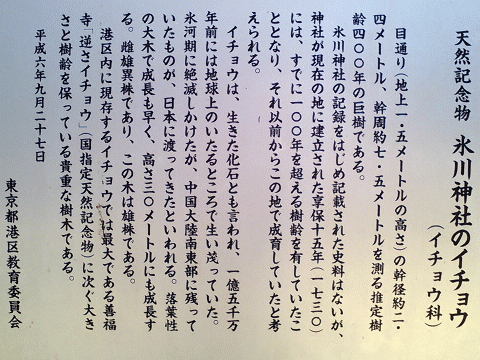 天然記念物 氷川神社のイチョウ
(イチョウ科)
目通り(地上一・五メートルの高さ)の幹径約二・
四メートル、幹周約七・五メートルを測る推定樹
齢四〇〇年の巨樹である。
氷川神社の記録をはじめ記載された史料はないが、
神社が現在の地に建立された享保十五年(一七三〇)
には、すでに一〇〇年を超える樹齢を有していたこ
ととなり、それ以前からこの地で成育していたと考
えられる。
イチョウは、生きた化石とも言われ、一億五千万
年前には地球上のいたるところで生い茂っていた。
氷河期に絶滅しかけたが、中国大陸南東部に残って
いたものが、日本に渡ってきたといわれる。落葉性
の大木で成長も早く、高さ三〇メートルにも成長す
る。雌雄異株であり、この木は雄株である。
港区内に現存するイチョウでは最大である善福
寺「逆さイチョウ」(国指定天然記念物)に次ぐ大き
さと樹齢を保っている貴重な樹木である。
平成六年九月二十七日
東京都港区教育委員会